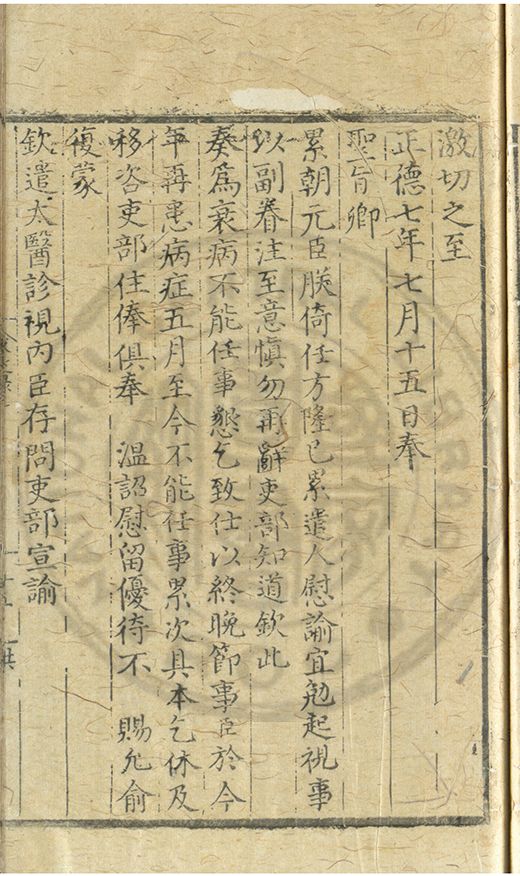 激切之至
正德七年七月十五日奉
聖旨卿
累朝元臣朕倚任方隆已累遣人慰諭宜勉起視事
以副眷注至意慎勿再辭吏部知道欽此
奏為衰病不能任事懇乞致仕以終晚節事臣於今
年再患病症五月至今不能任事累次具本乞休及
移咨吏部住俸俱奉 溫詔慰留優待不 賜允俞
復蒙
欽遣太醫診視內臣存問吏部宣諭